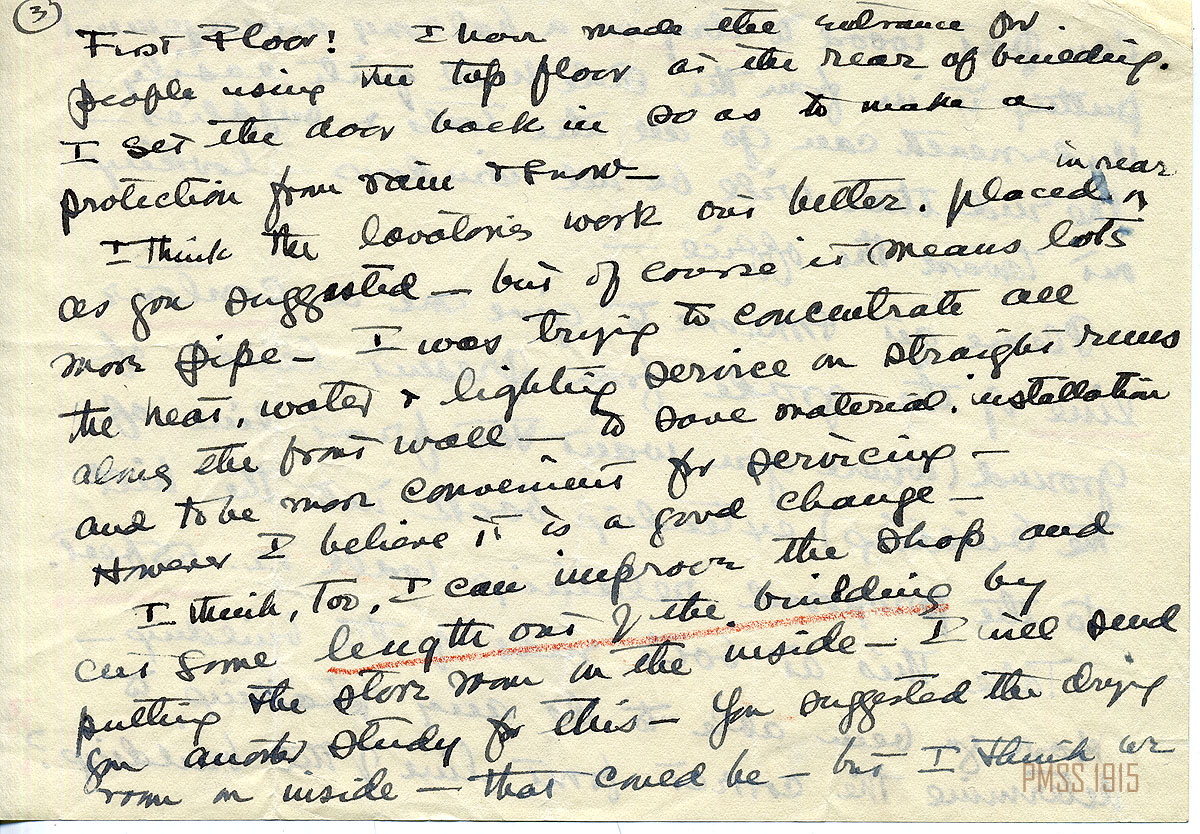 3
First Floor! I have made the entrance for
people using the top floor at the rear of building.
I set the door back in so as to make a
protection from rain & snow—
I think the lavatories work out better. placed in rear
as you suggested — but of course it means lots
more pipe — I was trying to concentrate all
the heat, water & lighting service on straight runs
along the front wall — to save material. installation
and to be more convenient for servicing —
However I believe it is a good change —
I think, too, I can improve the shop and
cut some length out of the building by
putting the store room on the inside — I will send
you another study for this — You suggested the drying
room on inside — that could be — but I think we
PMSS 1915